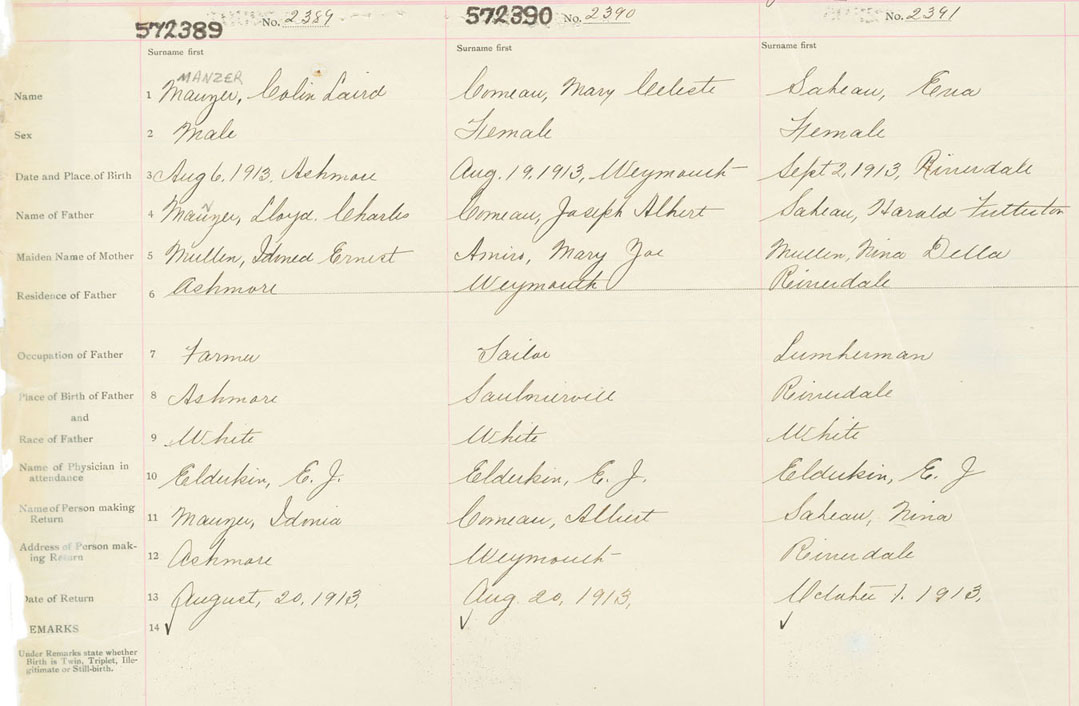 572389 No. 2389 572390 No. 2390 No. 2391
Surname first Surname first Surname first
MANZER
Name 1 Mauzer, Colin Laird Comeau, Mary Celeste Sabeau, Ena
Sex 2 Male Female Female
Date and Place of Birth 3 Aug 6, 1913, Ashmore Aug. 19, 1913, Weymouth Sept 2, 1913, Riverdale
Name of Father 4 Manzer, Lloyd Charles Comeau, Joseph Albert Sabeau, Harald
Maiden Name of Mother 5 Mullen, Ernest Amiro, Mary Zoe Mullen, Nina Della
Residence of Father 6 Ashmore Weymouth Riverdale
Occupation of Father 7 Farmer Sailor Lumberman
Place of Birth of Father 8 Ashmore Saulnierville Riverdale
and
Race of Father 9 White White White
Name of Physician in
attendance 10 Elderkin, E. J. Elderkin, E. J. Elderkin, E. J
Name of Person making
Return 11 Mauzer, Idonia Comeau, Albert Sabeau, Nina
Address of Person mak-
ing Return 12 Ashmore Weymouth Riverdale
Date of Return 13 August, 20, 1913, Aug. 20, 1913, October 1. 1913,
EMARKS 14 ✓ ✓ ✓
Under Remarks state whether
Birth is Twin, Triplet, Ille-
gitimate or Still-birth.